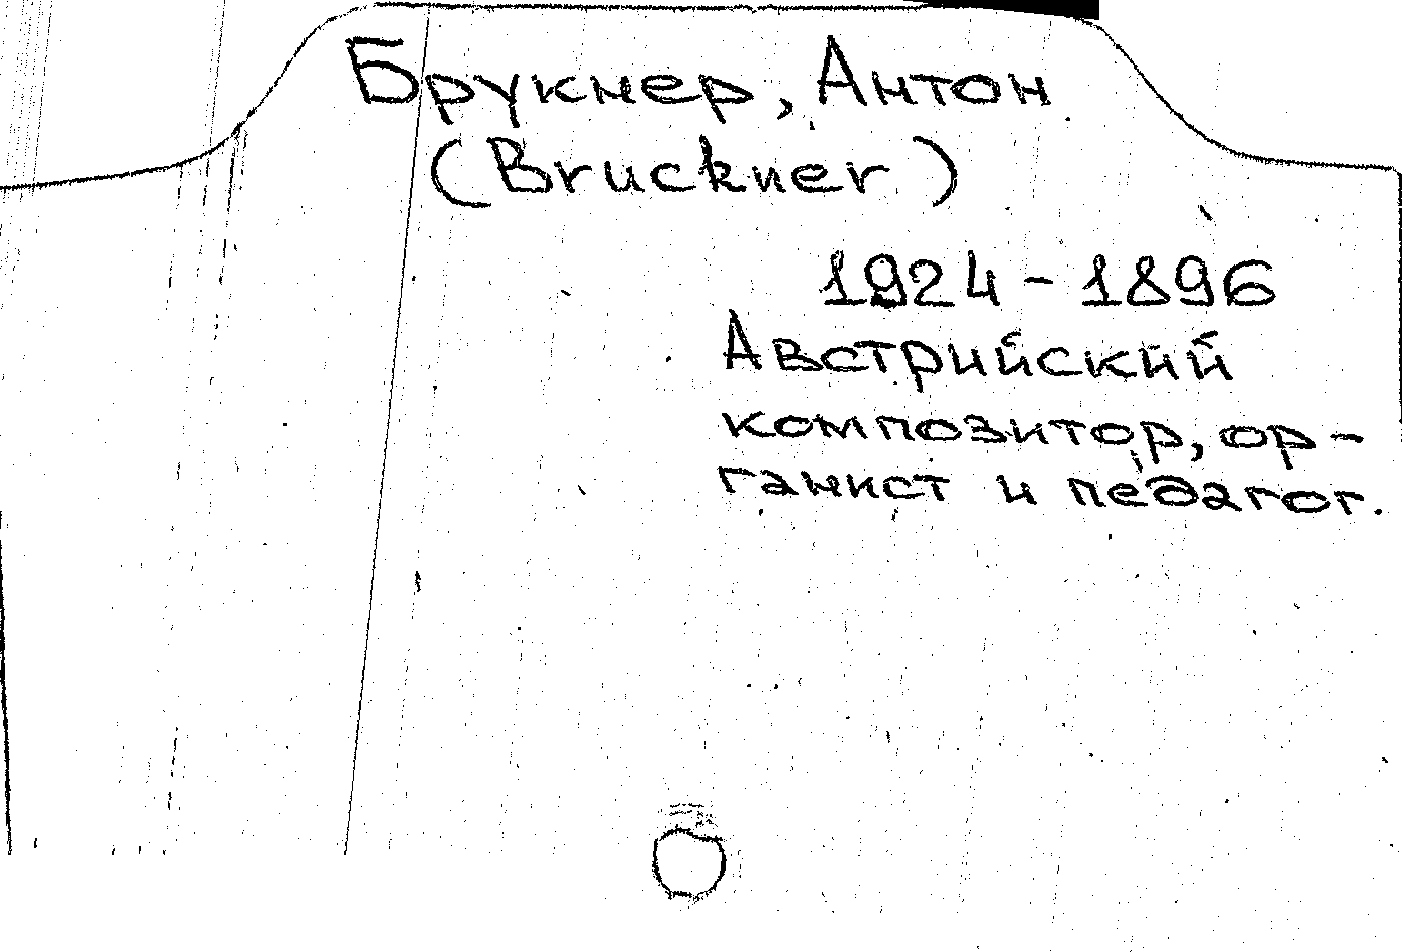 Брукнер, Антон
(Bruckner)
1924 - 1896
Австрийский
композитор, ор-
ганист и педагог.